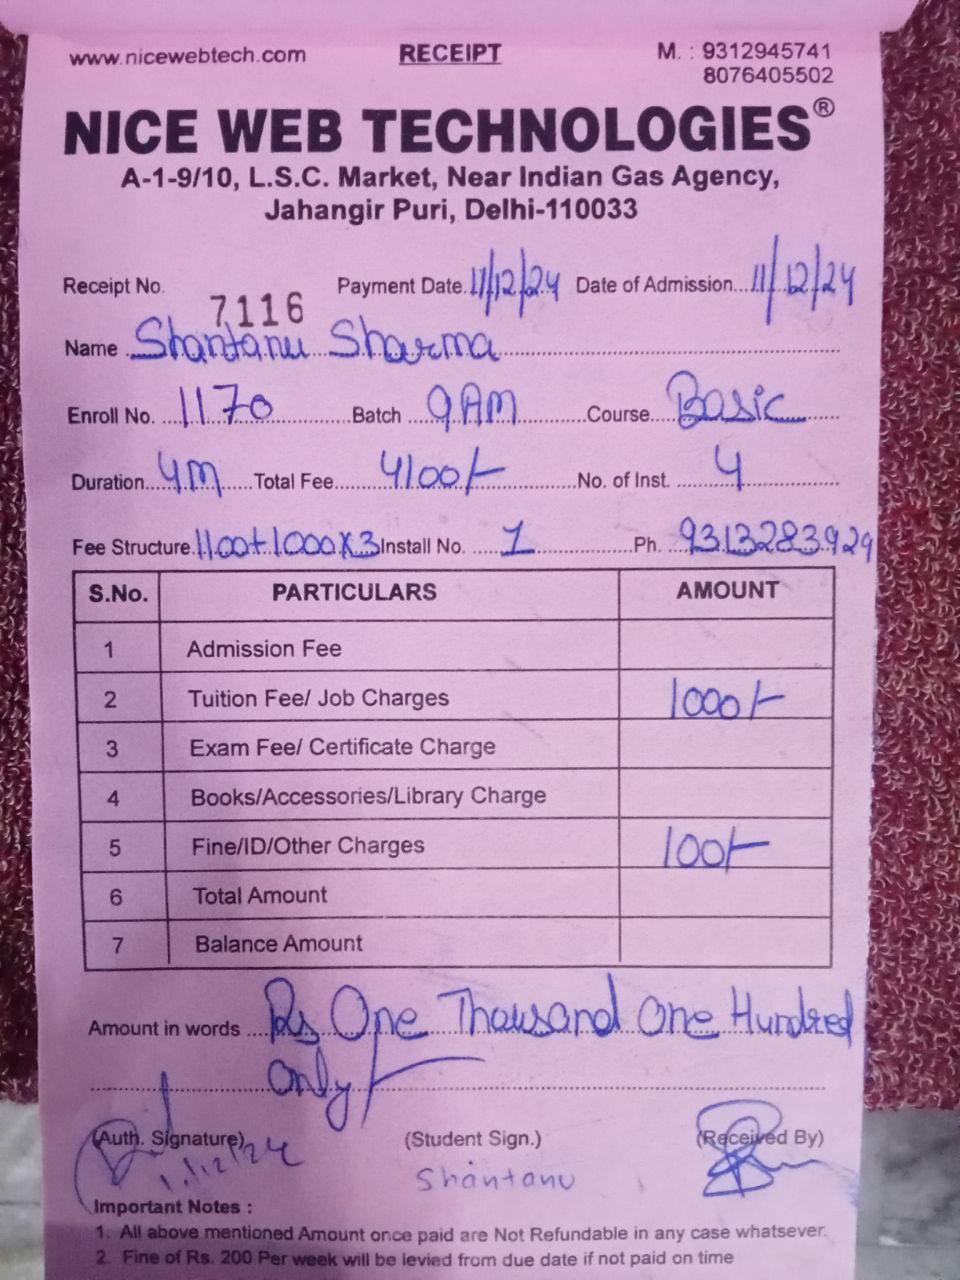 www.nicewebtech.com RECEIPT M. : 9312945741
8076405502
NICE WEB TECHNOLOGIES®
A-1-9/10, L.S.C. Market, Near Indian Gas Agency,
Jahangir Puri, Delhi-110033
Receipt No. 7116 Payment Date. 11/12/24 Date of Admission... 11/12/24
Name Shantanu Sharma
Enroll No. 1170 Batch 9AM Course Basic
Duration 4M Total Fee 4100/- No. of Inst. 4
Fee Structure 1100+1000x3 Install No. 1 Ph. 9313283929
S.No. PARTICULARS AMOUNT
1 Admission Fee
2 Tuition Fee/ Job Charges 1000/-
3 Exam Fee/ Certificate Charge
4 Books/Accessories/Library Charge
5 Fine/ID/Other Charges 100/-
6 Total Amount
7 Balance Amount
Amount in words Rs One Thousand One Hundred
only/-
(Auth. Signature) (Student Sign.) (Received By)
11/12/24 Shantanu
Important Notes :
1. All above mentioned Amount once paid are Not Refundable in any case whatsever.
2. Fine of Rs. 200 Per week will be levied from due date if not paid on time